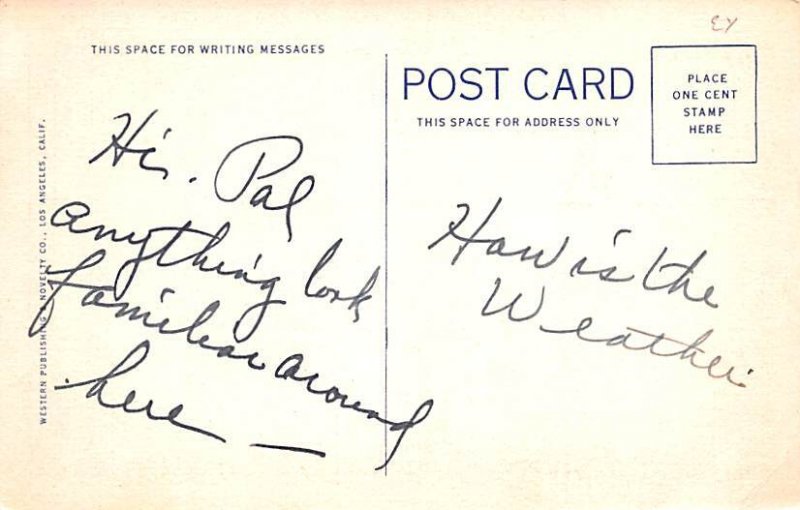 EY
THIS SPACE FOR WRITING MESSAGES
POST CARD
THIS SPACE FOR ADDRESS ONLY
PLACE
ONE CENT
STAMP
HERE
WESTERN PUBLISHING & NOVELTY CO., LOS ANGELES, CALIF.
Hi. Pal
anything look
familiar around
here —
How is the
Weather.